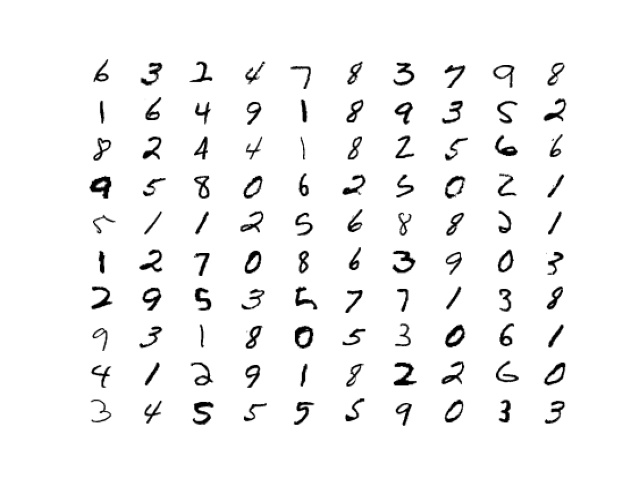 6 3 2 4 7 8 3 7 9 8
1 6 4 9 1 8 9 3 5 2
8 2 4 4 1 8 2 5 6 6
9 5 8 0 6 2 5 0 2 1
5 1 1 2 5 6 8 8 2 1
1 2 7 0 8 6 3 9 0 3
2 9 5 3 5 7 7 1 3 8
9 3 1 8 0 5 3 0 6 1
4 1 2 9 1 8 2 2 6 0
3 4 5 5 5 5 9 0 3 3